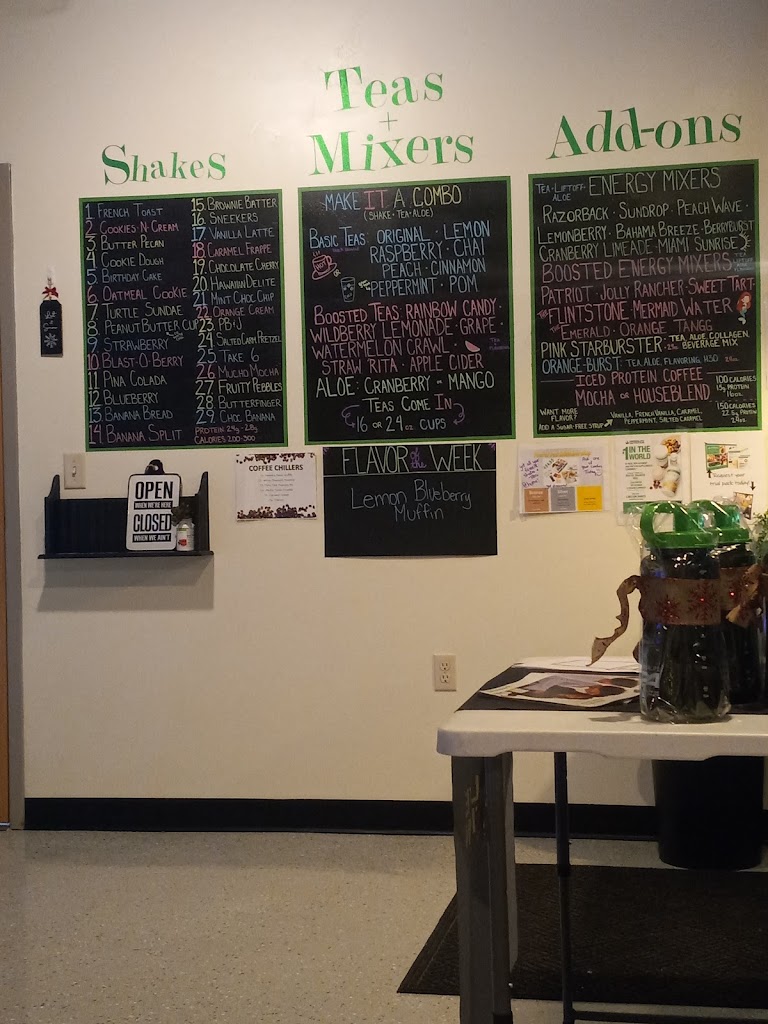 Shakes
1 French Toast
2 Cookies-N-Cream
3 Butter Pecan
4 Cookie Dough
5 Birthday Cake
6 Oatmeal Cookie
7 Turtle Sundae
8 Peanut Butter Cup
9 Strawberry
10 Blast-O-Berry
11 Pina Colada
12 Blueberry
13 Banana Bread
14 Banana Split
15. Brownie Batter
16 Sneekers
17 Vanilla Latte
18 Caramel Frappe
19. Chocolate Cherry
20 Hawaiian Delite
21 Mint Choc Chip
22 Orange Cream
23 PB+J
24 Salted Carm Pretzel
25 Take 6
26 Mucho Mocha
27 Fruity Pebbles
28 Butterfinger
29 Choc Banana
Protein 24g-28g
Calories 200-300
Teas
+
Mixers
Make it a Combo
(Shake-Tea-Aloe)
Basic Teas: Original · Lemon
Raspberry · Chai
Peach · Cinnamon
Peppermint · Pom
Hot
or
Boosted Teas: Rainbow Candy ·
Wildberry Lemonade · Grape ·
Watermelon Crawl ·
Straw Rita · Apple Cider
Aloe: Cranberry or Mango
Teas Come In
16 or 24 oz. Cups
Add-ons
Tea-Liftoff
Aloe
Energy Mixers
Razorback · Sundrop · Peach Wave ·
Lemonberry · Bahama Breeze · Berryburst
Cranberry Limeade · Miami Sunrise
Boosted Energy Mixers
Patriot · Jolly Rancher · Sweet Tart ·
The Flintstone · Mermaid Water
The Emerald · Orange Tangg
Pink Starburster: Tea, Aloe, Collagen,
Beverage Mix
Orange-Burst: Tea, Aloe, Flavoring, H3O 24oz.
Iced Protein Coffee
Mocha or Houseblend
100 Calories
15g Protein
16oz.
150 Calories
22.5g Protein
24oz.
Want More
Flavor?
Add a Sugar-Free Syrup
Vanilla, French Vanilla, Caramel,
Peppermint, Salted Caramel
OPEN
WHEN WE'RE HERE
CLOSED
WHEN WE AIN'T
COFFEE CHILLERS
Flavor of the Week
Lemon Blueberry
Muffin
#1 IN THE
WORLD